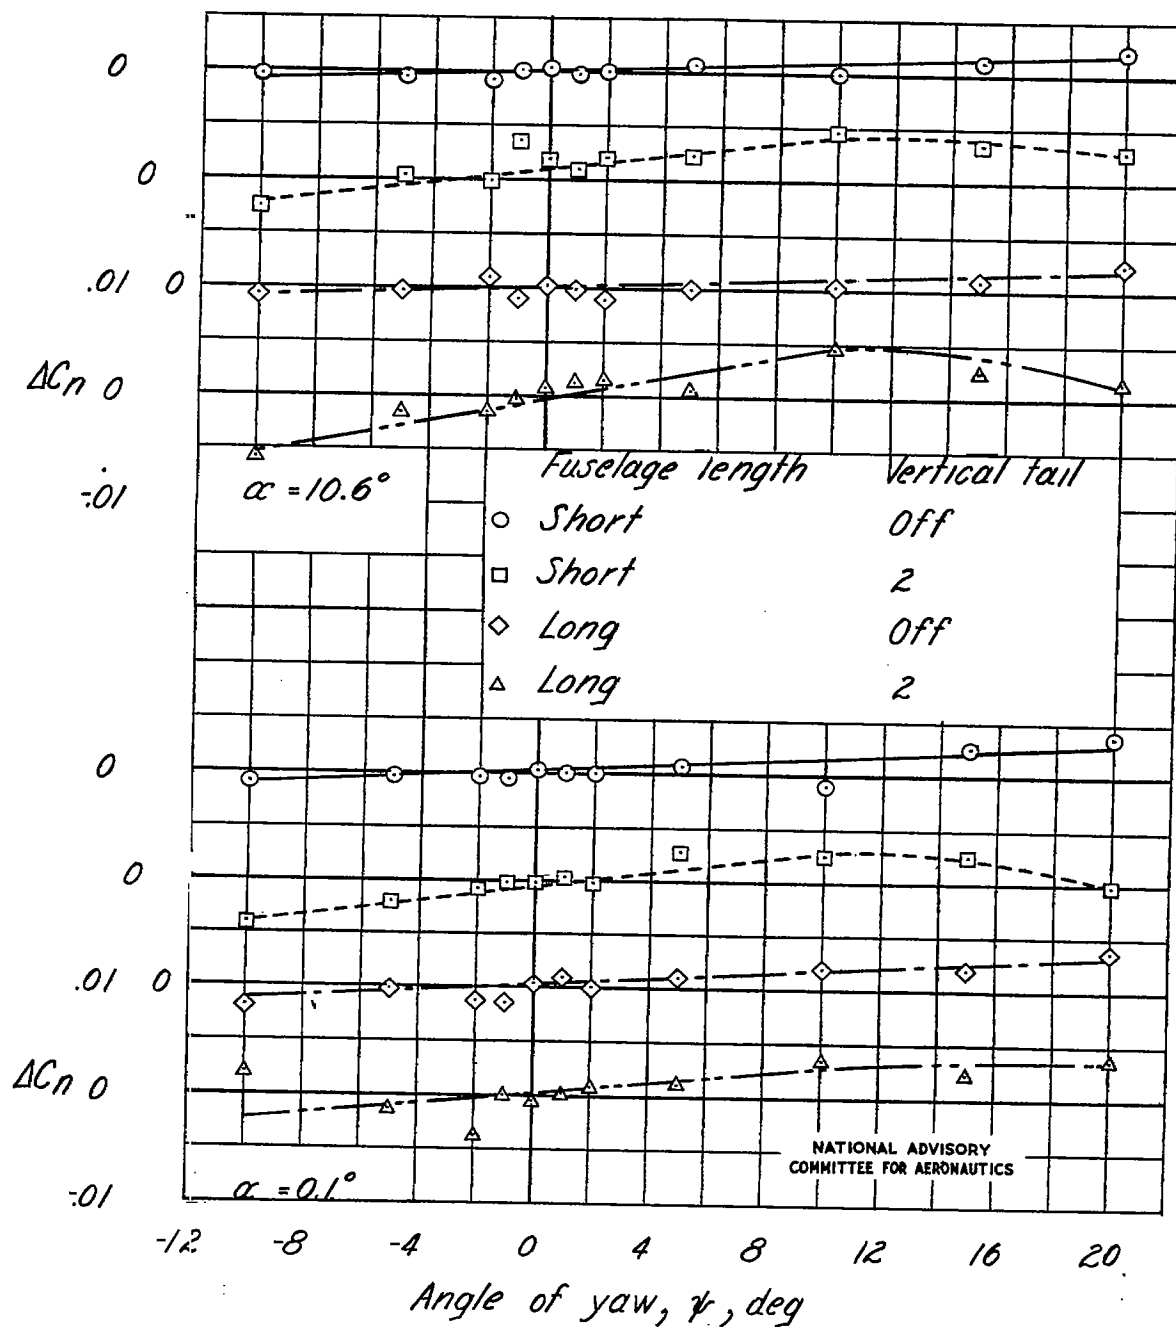 0
0
.01 0
ΔCn 0
-.01
α = 10.6°
Fuselage length Vertical tail
Short Off
Short 2
Long Off
Long 2
0
0
.01 0
ΔCn 0
-.01
α = 0.1°
NATIONAL ADVISORY
COMMITTEE FOR AERONAUTICS
-12 -8 -4 0 4 8 12 16 20
Angle of yaw, ψ, deg